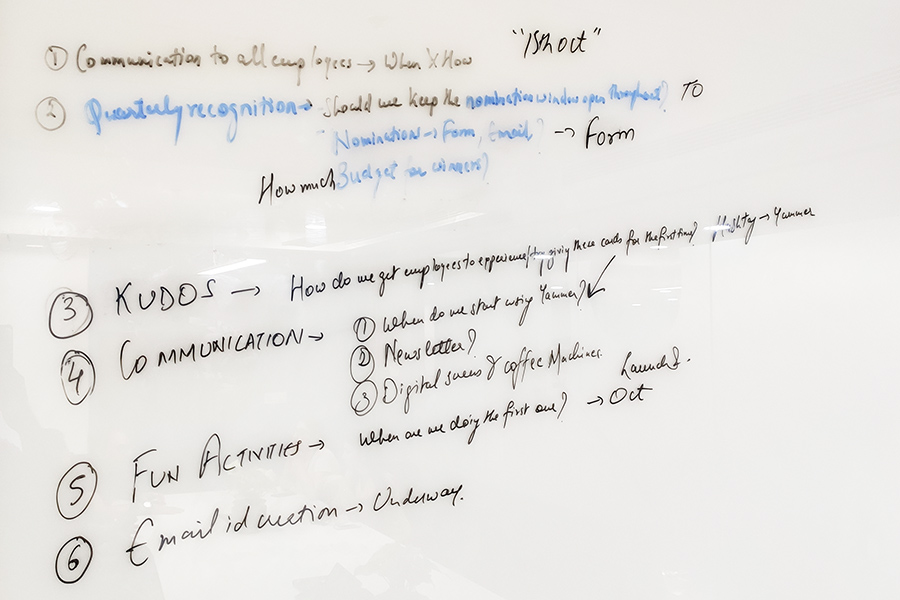 ① Communication to all employees → When & How "15th oct"
② Quarterly recognition → Should we keep the nomination window open throughout? TO
Nomination → Form, Email? → Form
How much Budget for winners?
③ KUDOS → How do we get employees to experience giving these cards for the first time? Hashtag → Yammer
④ COMMUNICATION → ① When do we start using Yammer?
② Newsletter?
③ Digital screens & coffee Machines.
⑤ FUN ACTIVITIES → When are we doing the first one? → Oct Launch
⑥ Email id creation → Underway.